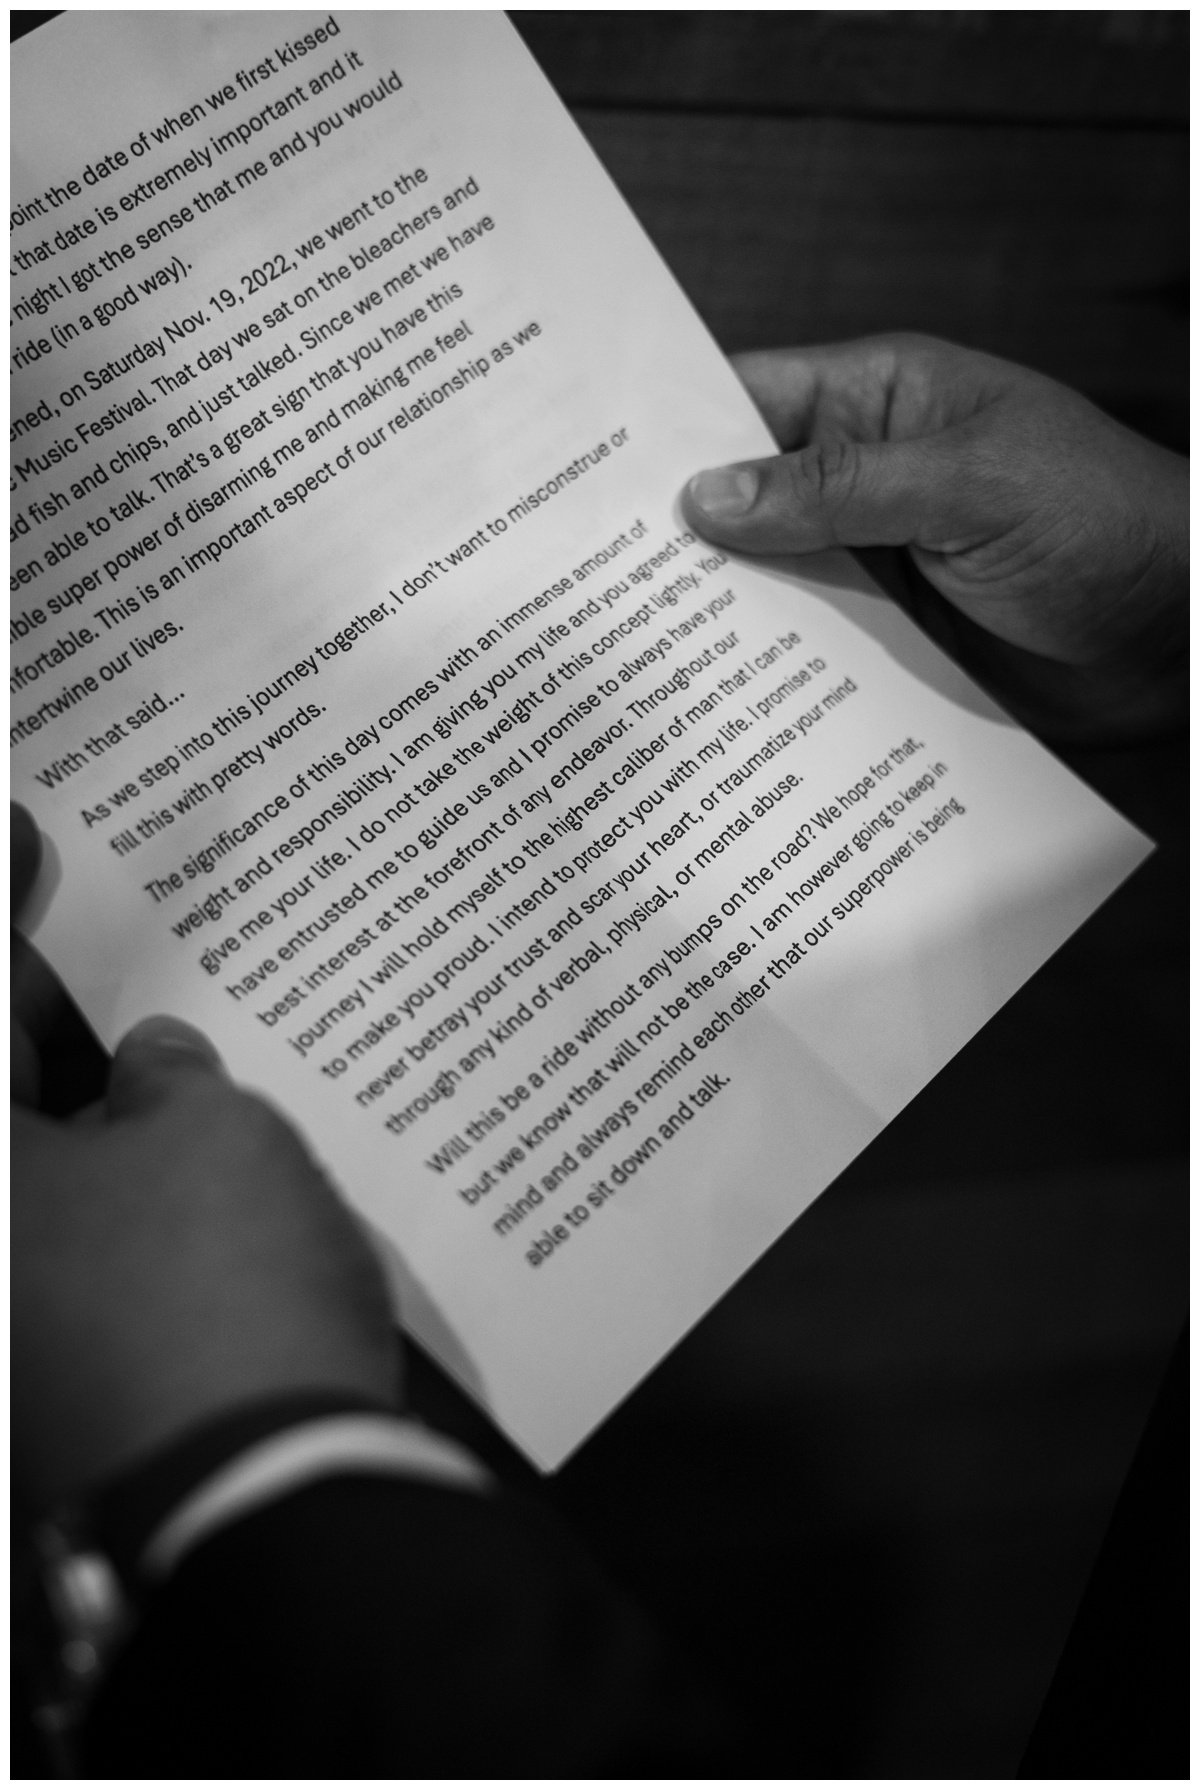 point the date of when we first kissed
that date is extremely important and it
night I got the sense that me and you would
ride (in a good way).
ened, on Saturday Nov. 19, 2022, we went to the
Music Festival. That day we sat on the bleachers and
ad fish and chips, and just talked. Since we met we have
een able to talk. That's a great sign that you have this
ible super power of disarming me and making me feel
mfortable. This is an important aspect of our relationship as we
intertwine our lives.
With that said...
As we step into this journey together, I don't want to misconstrue or
fill this with pretty words.
The significance of this day comes with an immense amount of
weight and responsibility. I am giving you my life and you agreed to
give me your life. I do not take the weight of this concept lightly. You
have entrusted me to guide us and I promise to always have your
best interest at the forefront of any endeavor. Throughout our
journey I will hold myself to the highest caliber of man that I can be
to make you proud. I intend to protect you with my life. I promise to
never betray your trust and scar your heart, or traumatize your mind
through any kind of verbal, physical, or mental abuse.
Will this be a ride without any bumps on the road? We hope for that,
but we know that will not be the case. I am however going to keep in
mind and always remind each other that our superpower is being
able to sit down and talk.